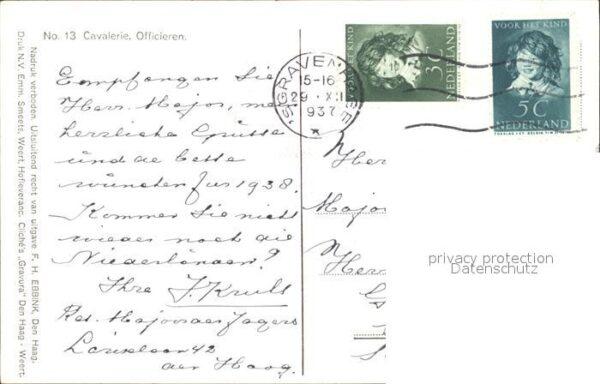 No. 13 Cavalerie, Officieren.
Empfangen Sie
Herr Major, me
herzliche Grüsse
und de beste
wünschen fur 1938.
Kommen Sie nicht
wieder nach die
Niederlanden?
Ihre J. Kruls
Res. Majoor der Jagers
42
den Haag
Nadruk verboden. Uitsluitend recht van uitgave F. H. EBBINK, Den Haag.
Druk N.V. Emm. Smeets, Weert, Hofleveranc. Cliché's „Gravura” Den Haag - Weert.
'SGRAVENHAGE
15-16
29 · XII
1937
VOOR HET KIND
3C
NEDERLAND
VOOR HET KIND
5C
NEDERLAND
Her
Major
Herr
privacy protection
Datenschutz